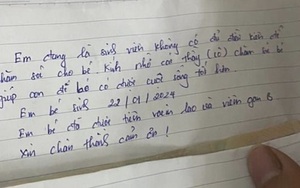 Em đang là sinh viên không có đủ điều kiện để
chăm sóc cho bé. Kính nhờ các thầy (cô) chăm bé
giúp con để bé có được cuộc sống tốt hơn.
Em bé sinh 22/01/2024
Em bé đã được tiêm vaccin lao và viêm gan B
Xin chân thành cảm ơn!